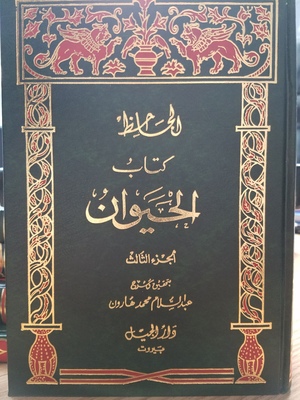 الجاحظ
كتاب
الحيوان
الجزء الثالث
بتحقيق وشرح
عبد السلام محمد هارون
دار الجيل
بيروت